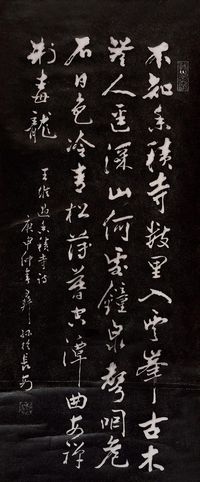 不知香積寺數里入雲峯古木
無人逕深山何處鐘泉聲咽危
石日色冷青松薄暮空潭曲安禪
制毒龍
王維過香積寺詩
庚申仲冬